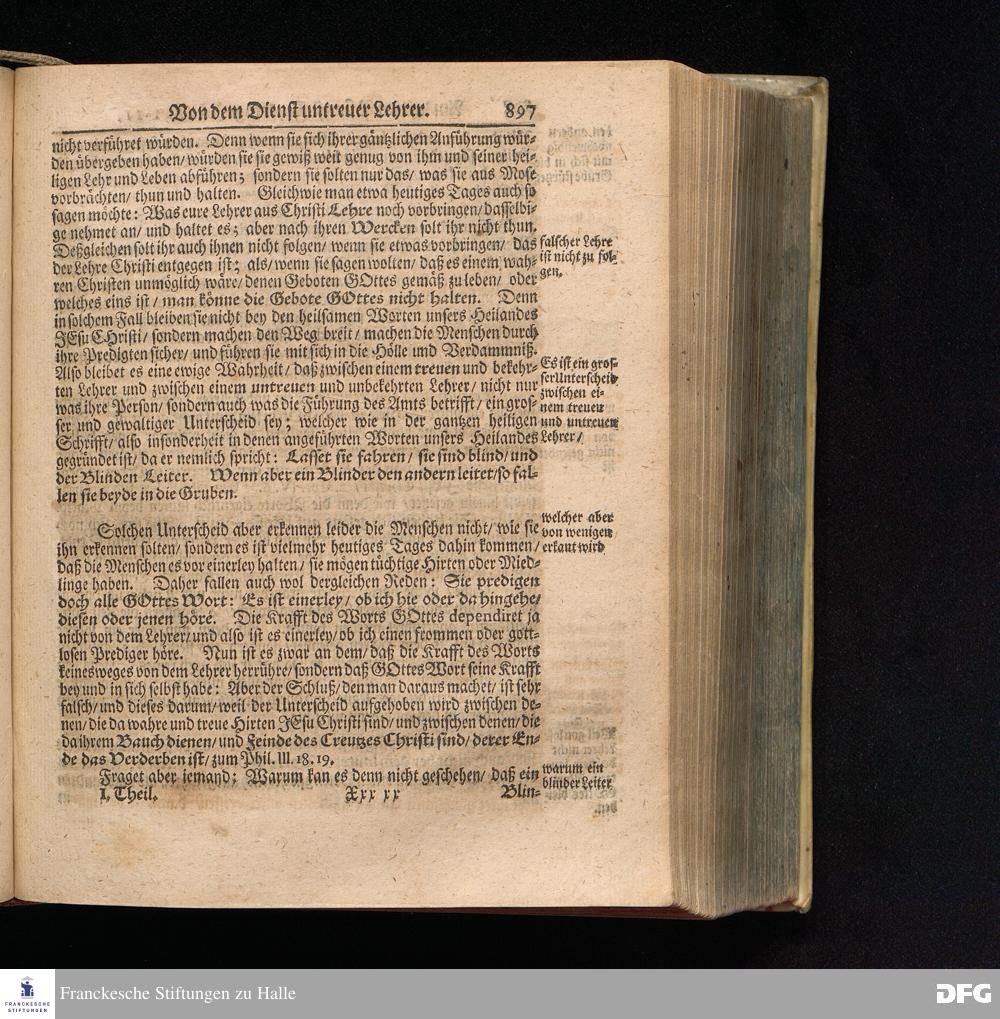 Von dem Dienst untreuer Lehrer. 897
nicht verführet würden. Denn wenn sie sich ihrer gäntzlichen Anführung wür-
den übergeben haben/ würden sie sie gewiß weit genug von ihm und seiner hei-
ligen Lehr und Leben abführen; sondern sie solten nur das/ was sie aus Mose
vorbrächten/ thun und halten. Gleichwie man etwa heutiges Tages auch so
sagen möchte: Was eure Lehrer aus Christi Lehre noch vorbringen/ dasselbi-
ge nehmet an/ und haltet es; aber nach ihren Wercken solt ihr nicht thun.
Deßgleichen solt ihr auch ihnen nicht folgen/ wenn sie etwas vorbringen/ das
der Lehre Christi entgegen ist; als/ wenn sie sagen wolten/ daß es einem wah-
ren Christen unmöglich wäre/ denen Geboten GOttes gemäß zu leben/ oder
welches eins ist/ man könne die Gebote GOttes nicht halten. Denn
in solchem Fall bleiben sie nicht bey den heilsamen Worten unsers Heilandes
JEsu CHristi/ sondern machen den Weg breit/ machen die Menschen durch
ihre Predigten sicher/ und führen sie mit sich in die Hölle und Verdammniß.
Also bleibet es eine ewige Wahrheit/ daß zwischen einem treuen und bekehr-
ten Lehrer und zwischen einem untreuen und unbekehrten Lehrer/ nicht nur
was ihre Person/ sondern auch was die Führung des Amts betrifft/ ein gros-
ser und gewaltiger Unterscheid sey; welcher wie in der gantzen heiligen
Schrifft/ also insonderheit in denen angeführten Worten unsers Heilandes
gegründet ist/ da er nemlich spricht: Lasset sie fahren/ sie sind blind/ und
der Blinden Leiter. Wenn aber ein Blinder den andern leitet/ so fal-
len sie beyde in die Gruben.
falscher Lehre
ist nicht zu fol-
gen.
Es ist ein gros-
ser Unterscheid
zwischen ei-
nem treuen
und untreuen
Lehrer/
Solchen Unterscheid aber erkennen leider die Menschen nicht/ wie sie
ihn erkennen solten/ sondern es ist vielmehr heutiges Tages dahin kommen/
daß die Menschen es vor einerley halten/ sie mögen tüchtige Hirten oder Mied-
linge haben. Daher fallen auch wol dergleichen Reden: Sie predigen
doch alle GOttes Wort: Es ist einerley/ ob ich hie oder da hingehe/
diesen oder jenen höre. Die Krafft des Worts GOttes dependiret ja
nicht von dem Lehrer/ und also ist es einerley/ ob ich einen frommen oder gott-
losen Prediger höre. Nun ist es zwar an dem/ daß die Krafft des Worts
keinesweges von dem Lehrer herrühre/ sondern daß GOttes Wort seine Krafft
bey und in sich selbst habe: Aber der Schluß/ den man daraus machet/ ist sehr
falsch/ und dieses darum/ weil der Unterscheid aufgehoben wird zwischen de-
nen/ die da wahre und treue Hirten JEsu Christi sind/ und zwischen denen/ die
da ihrem Bauch dienen/ und Feinde des Creutzes Christi sind/ derer En-
de das Verderben ist/ zum Phil. III. 18. 19.
welcher aber
von wenigen
erkant wird
Fraget aber jemand; Warum kan es denn nicht geschehen/ daß ein
warum ein
blinder Leiter
I. Theil. Xxx xx Blin-
Franckesche Stiftungen zu Halle
FRANCKESCHE
STIFTUNGEN
DFG